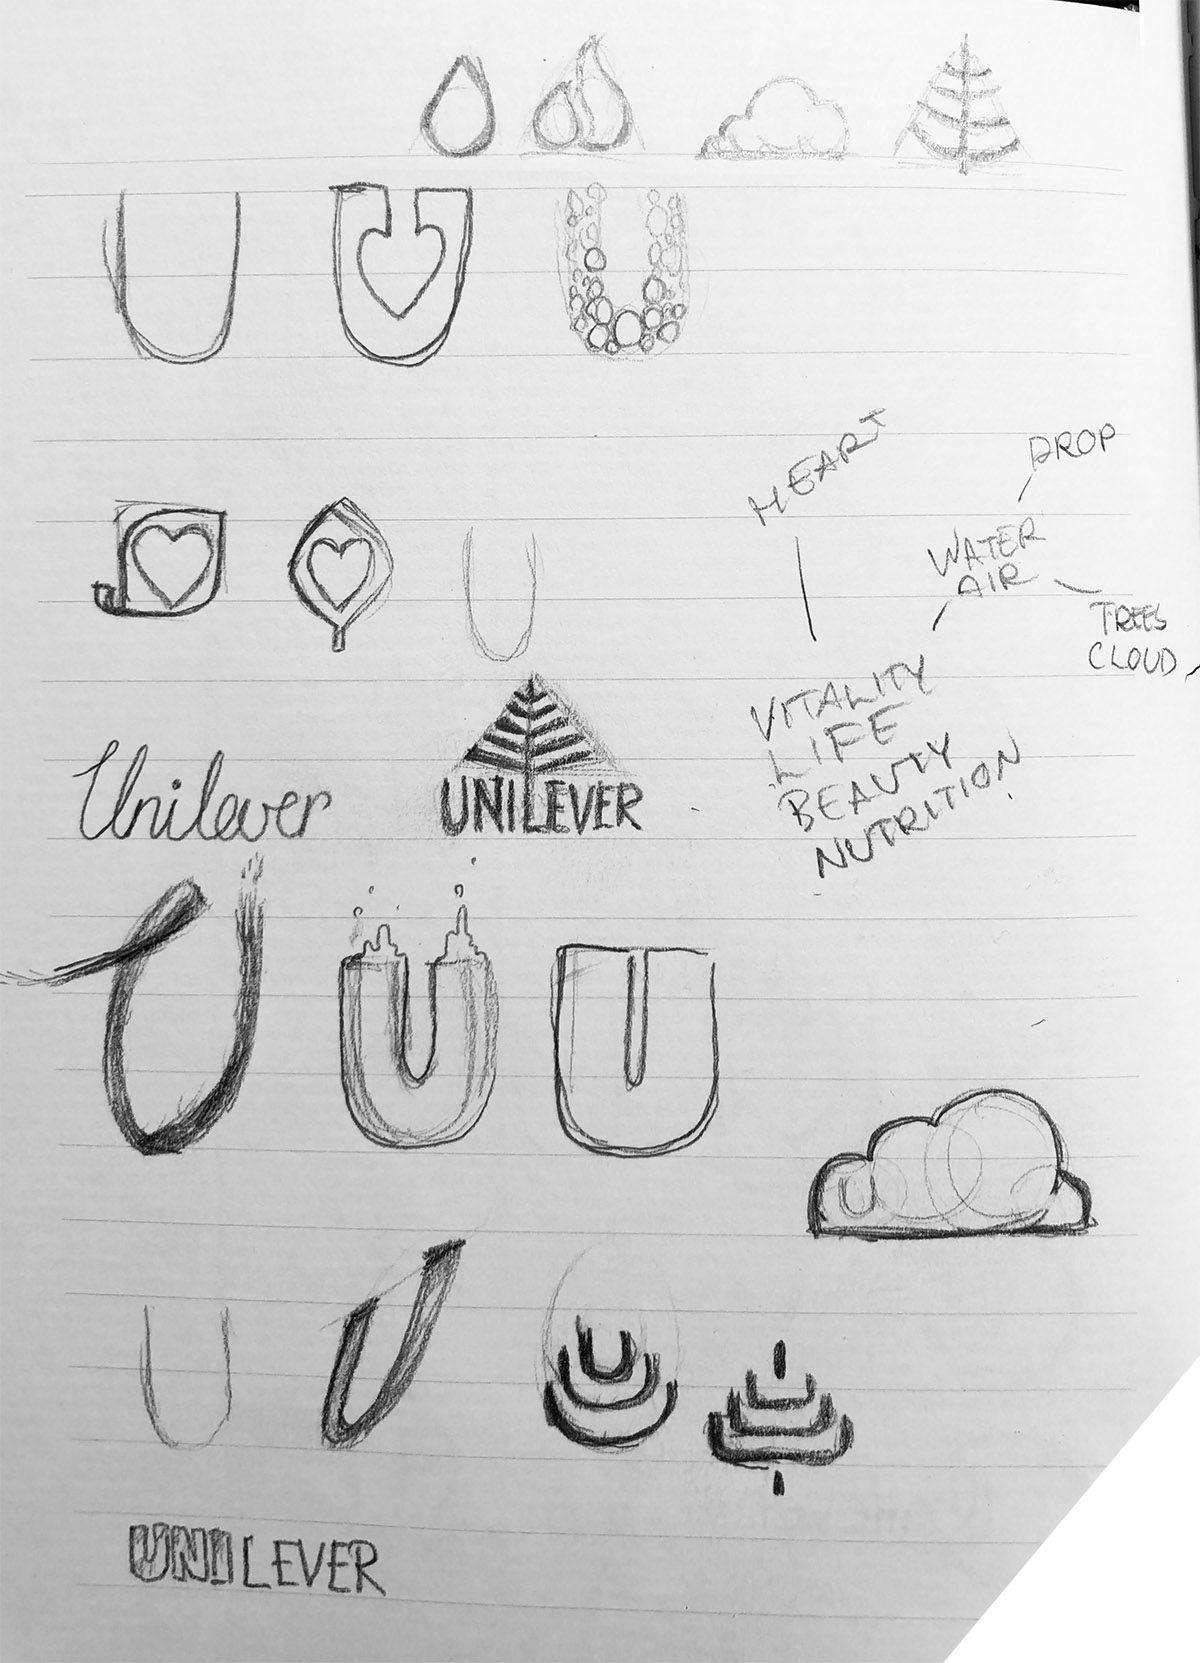 U
U
U
HEART
DROP
WATER
AIR
TREES
CLOUD
U
VITALITY
LIFE
BEAUTY
NUTRITION
Unilever
UNILEVER
U
U
U
U
U
U
U
UNILEVER